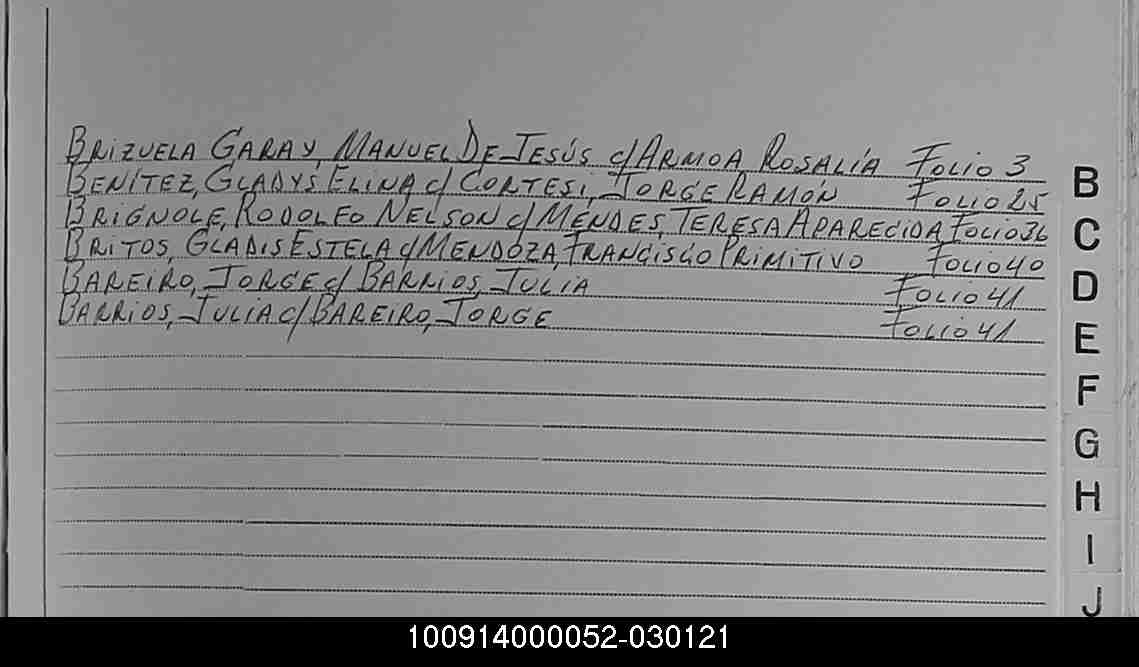 BRIZUELA GARAY, MANUEL DE JESÚS c/ ARMOA, ROSALÍA FOLIO 3
BENÍTEZ, GLADYS ELINA c/ CORTESI, JORGE RAMÓN FOLIO 25
BRIGNOLE, RODOLFO NELSON c/ MENDES, TERESA APARECIDA FOLIO 36
BRITOS, GLADIS ESTELA c/ MENDOZA, FRANCISCO PRIMITIVO FOLIO 40
BAREIRO, JORGE c/ BARRIOS, JULIA FOLIO 41
BARRIOS, JULIA c/ BAREIRO, JORGE FOLIO 41
B
C
D
E
F
G
H
I
J
100914000052-030121